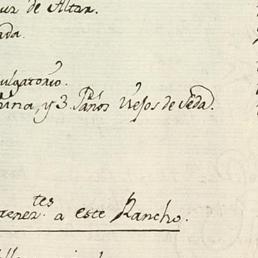 de Altar.
ada.
ulgatorio.
hina, y 3. Paños Viejos de Seda.
tenez.tes a este Rancho.